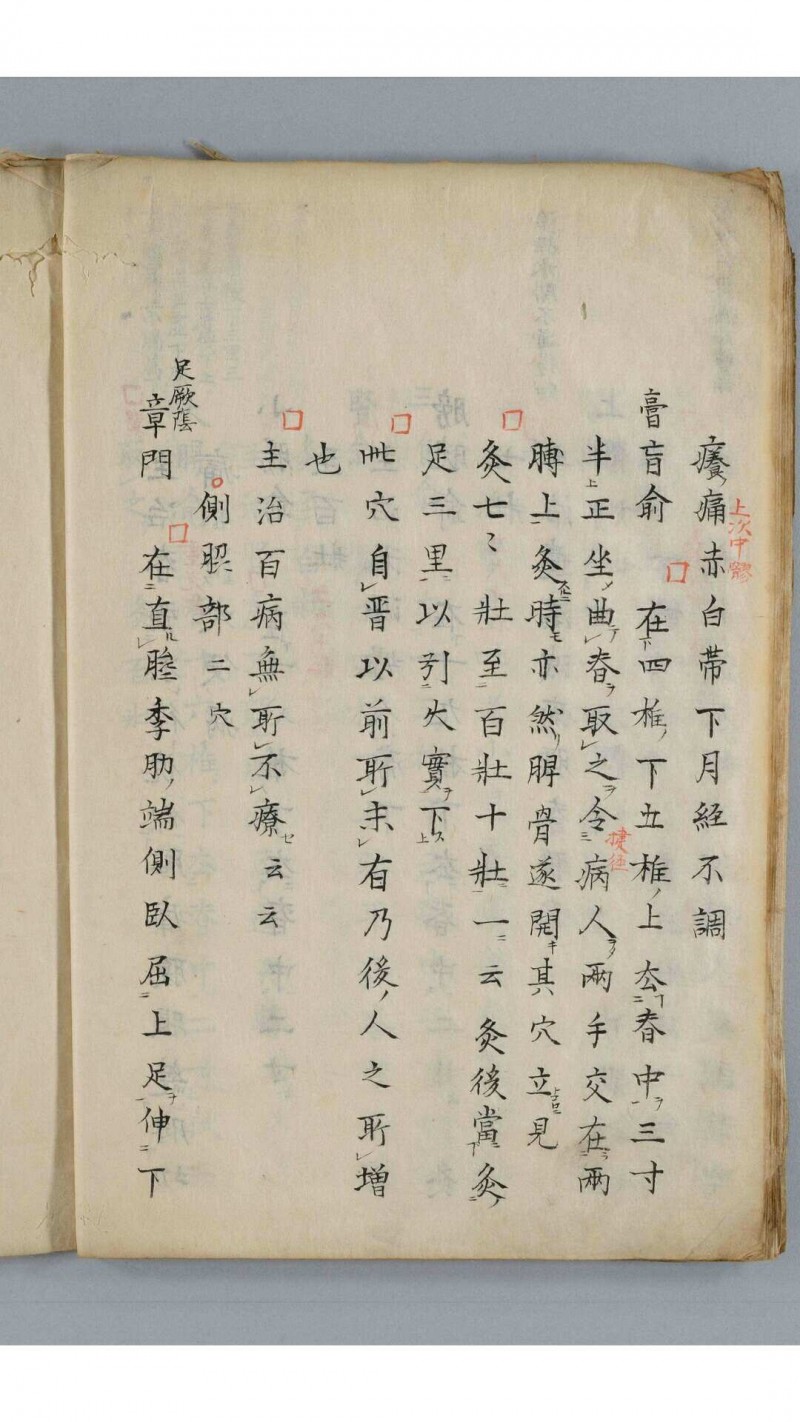 癢痛赤白帯下月経不調
上次中髎
膏肓俞 在四椎ノ下五椎ノ上去脊中三寸
捷径
半正坐曲脊取之令病人両手交在両
膊上灸時亦然胛骨遂開其穴立見
灸七〻壮至百壮十壮一云灸後當灸
足三里以引火實下
此穴自晋以前所未有乃後人之所増
也
主治百病無所不療云云
側脇部二穴
足厥陰
章門 在直臍季肋端側臥屈上足伸下